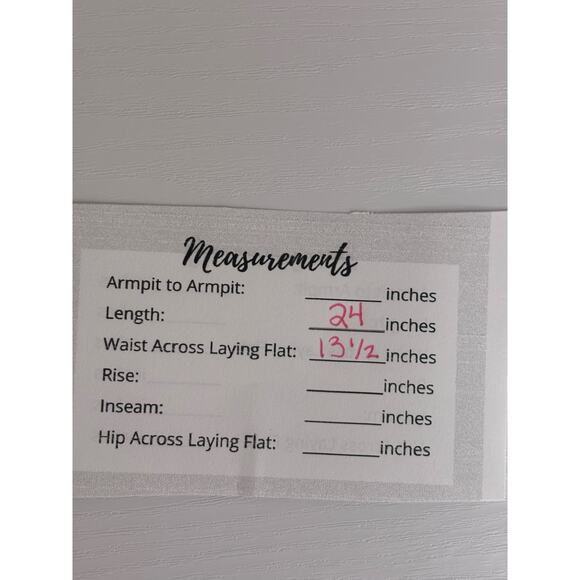 Measurements
Armpit to Armpit: ________ inches
Length: 24 inches
Waist Across Laying Flat: 13 1/2 inches
Rise: ________ inches
Inseam: ________ inches
Hip Across Laying Flat: ________ inches